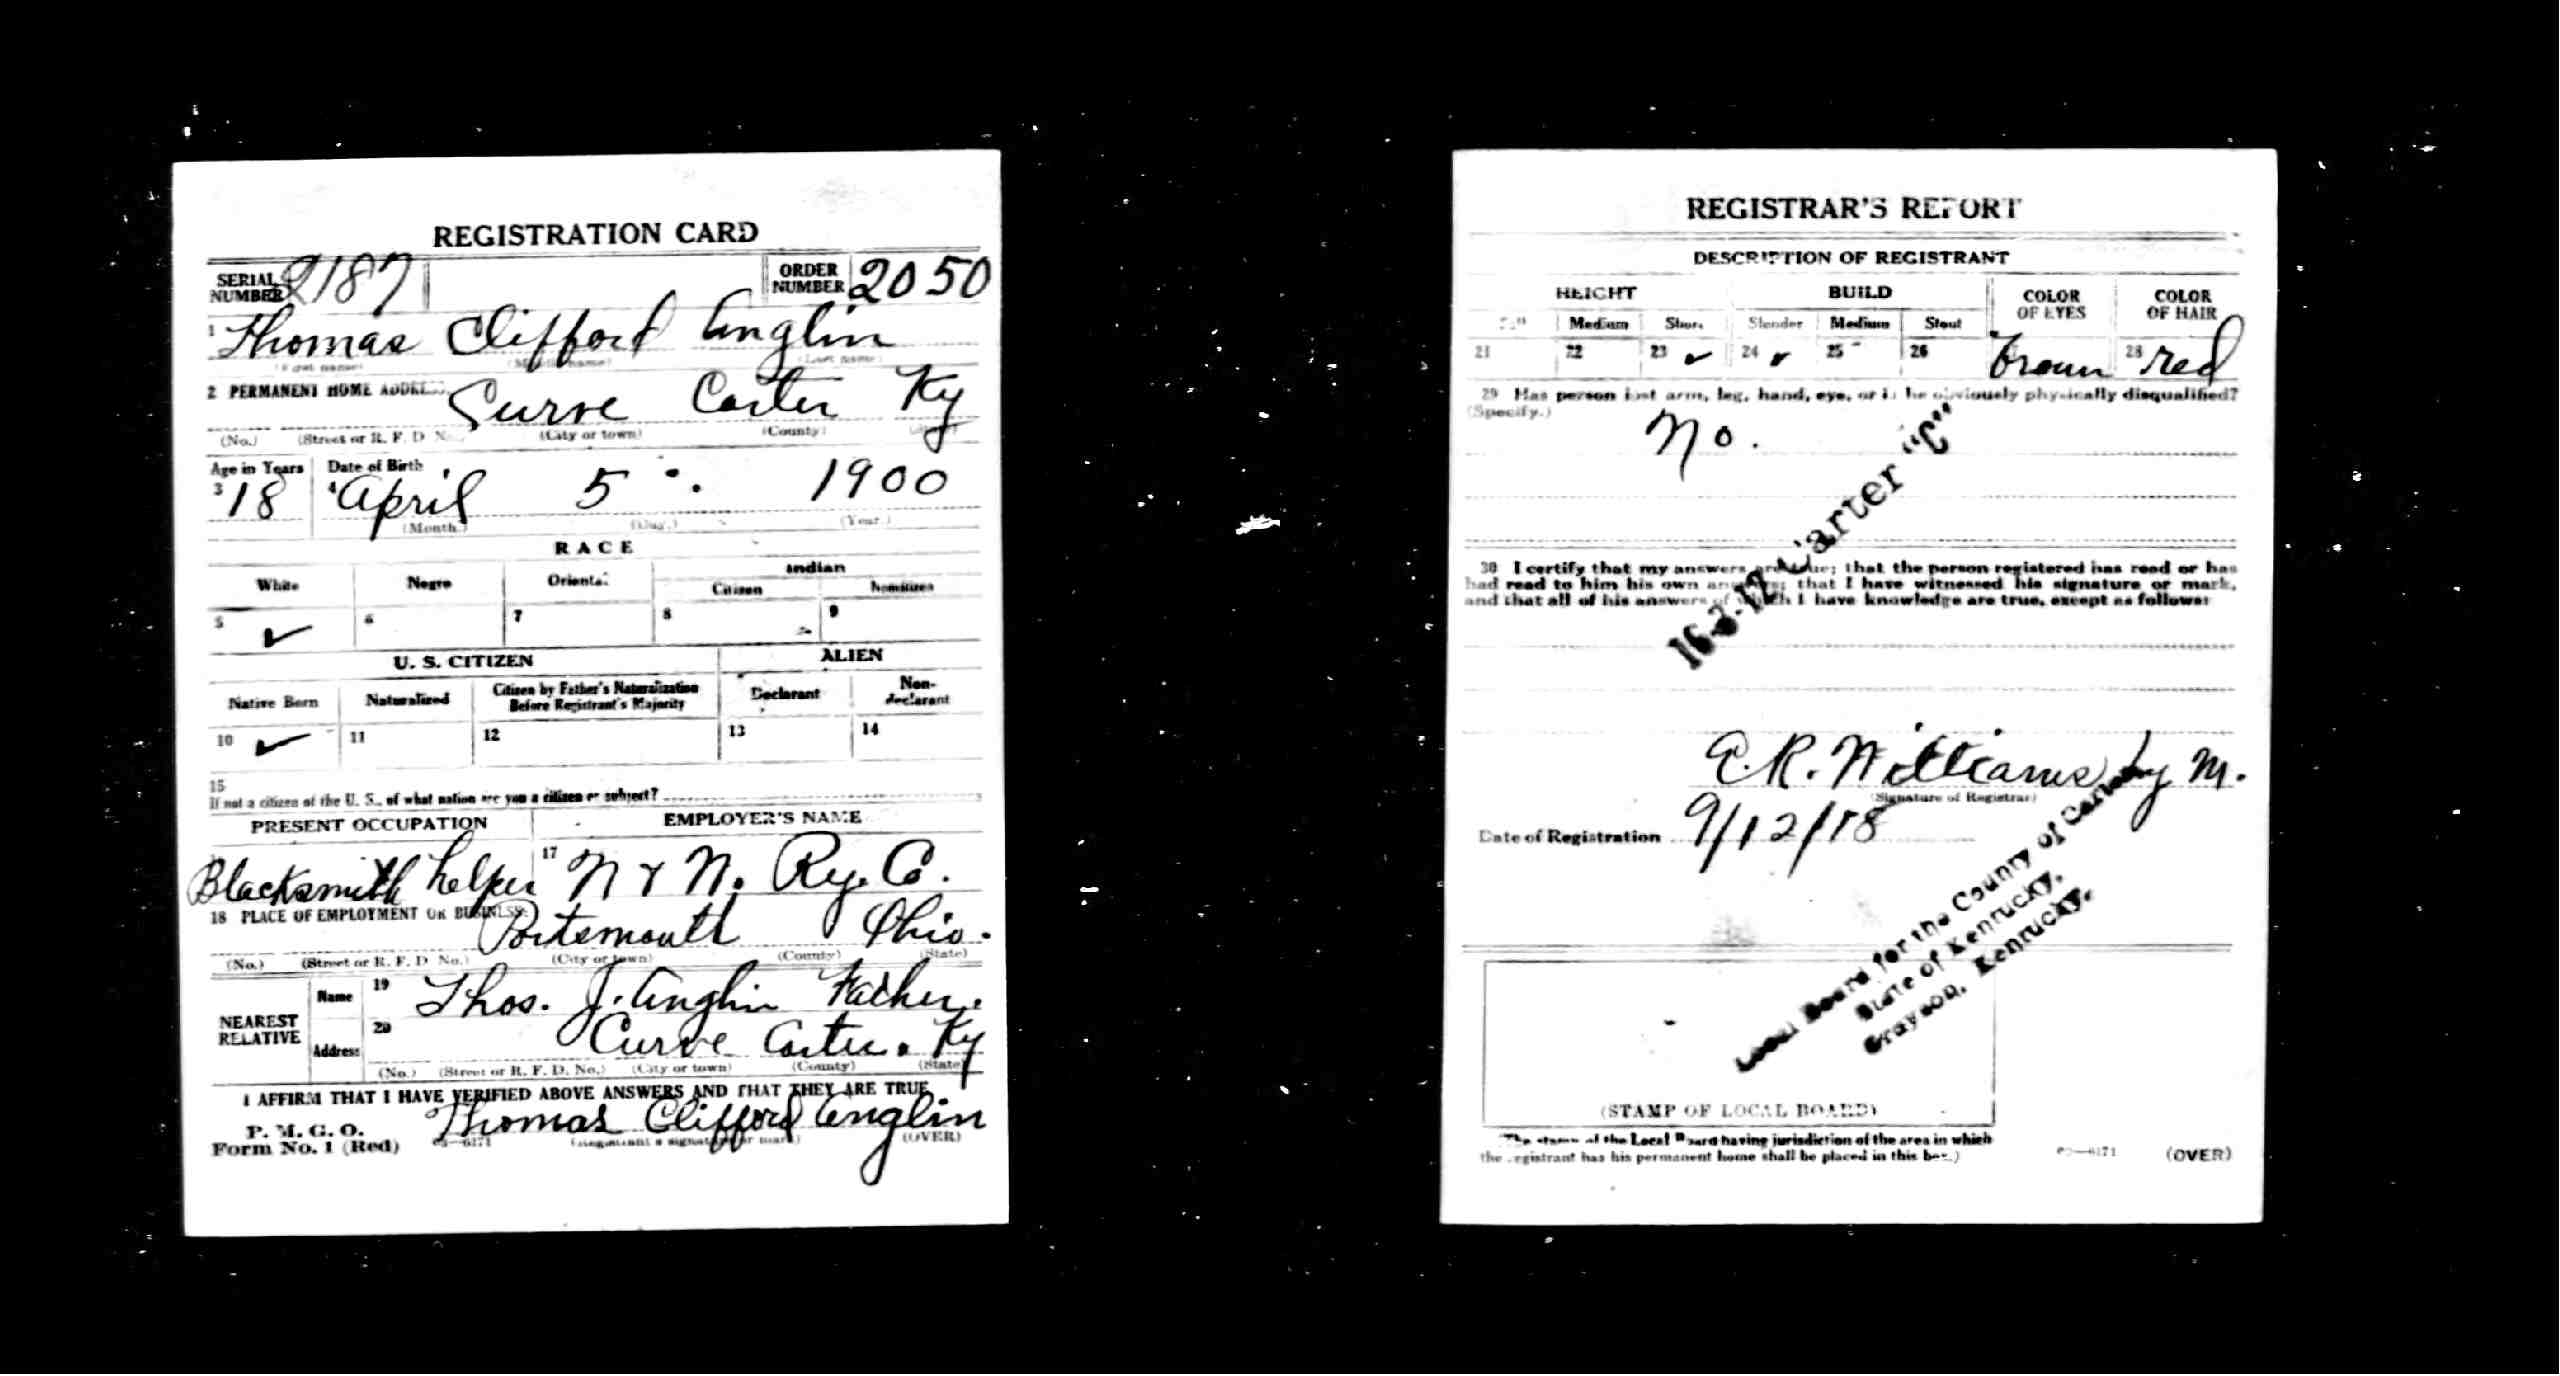 REGISTRATION CARD
SERIAL NUMBER 2187 ORDER NUMBER 2050
1 Thomas Clifford Anglin
(First name) (Middle name) (Last name)
2 PERMANENT HOME ADDRESS: Curve Carter Ky
(No.) (Street or R. F. D. No.) (City or town) (County) (State)
Age in Years Date of Birth
3 18 4 April 5 1900
(Month.) (Day.) (Year.)
RACE
White Negro Oriental Indian
Citizen Noncitizen
5 ✓ 6 7 8 9
U. S. CITIZEN ALIEN
Native Born Naturalized Citizen by Father's Naturalization Before Registrant's Majority Declarant Non-declarant
10 ✓ 11 12 13 14
15
If not a citizen of the U. S., of what nation are you a citizen or subject?
PRESENT OCCUPATION EMPLOYER'S NAME
Blacksmith helper 17 N & N. Ry. Co.
18 PLACE OF EMPLOYMENT OR BUSINESS:
Portsmouth Ohio.
(No.) (Street or R. F. D. No.) (City or town) (County) (State)
NEAREST RELATIVE Name 19 Thos. J. Anglin Father.
Address 20 Curve Carter. Ky
(No.) (Street or R. F. D. No.) (City or town) (County) (State)
I AFFIRM THAT I HAVE VERIFIED ABOVE ANSWERS AND THAT THEY ARE TRUE
P. M. G. O.
Form No. 1 (Red) 03—6171 Thomas Clifford Anglin
(Registrant's signature or mark) (OVER)
REGISTRAR'S REPORT
DESCRIPTION OF REGISTRANT
HEIGHT BUILD COLOR OF EYES COLOR OF HAIR
Tall Medium Short Slender Medium Stout
21 22 23 ✓ 24 ✓ 25 26 brown 28 red
29 Has person lost arm, leg, hand, eye, or is he obviously physically disqualified?
(Specify.)
No.
16-3-12 Carter "C"
30 I certify that my answers are true; that the person registered has read or has
had read to him his own answers; that I have witnessed his signature or mark,
and that all of his answers of which I have knowledge are true, except as follows:
E. R. Williams by M.
(Signature of Registrar)
Date of Registration 9/12/18
Local Board for the County of Carter,
State of Kentucky,
Grayson, Kentucky.
(STAMP OF LOCAL BOARD)
(The stamp of the Local Board having jurisdiction of the area in which
the registrant has his permanent home shall be placed in this box.)
03—6171 (OVER)